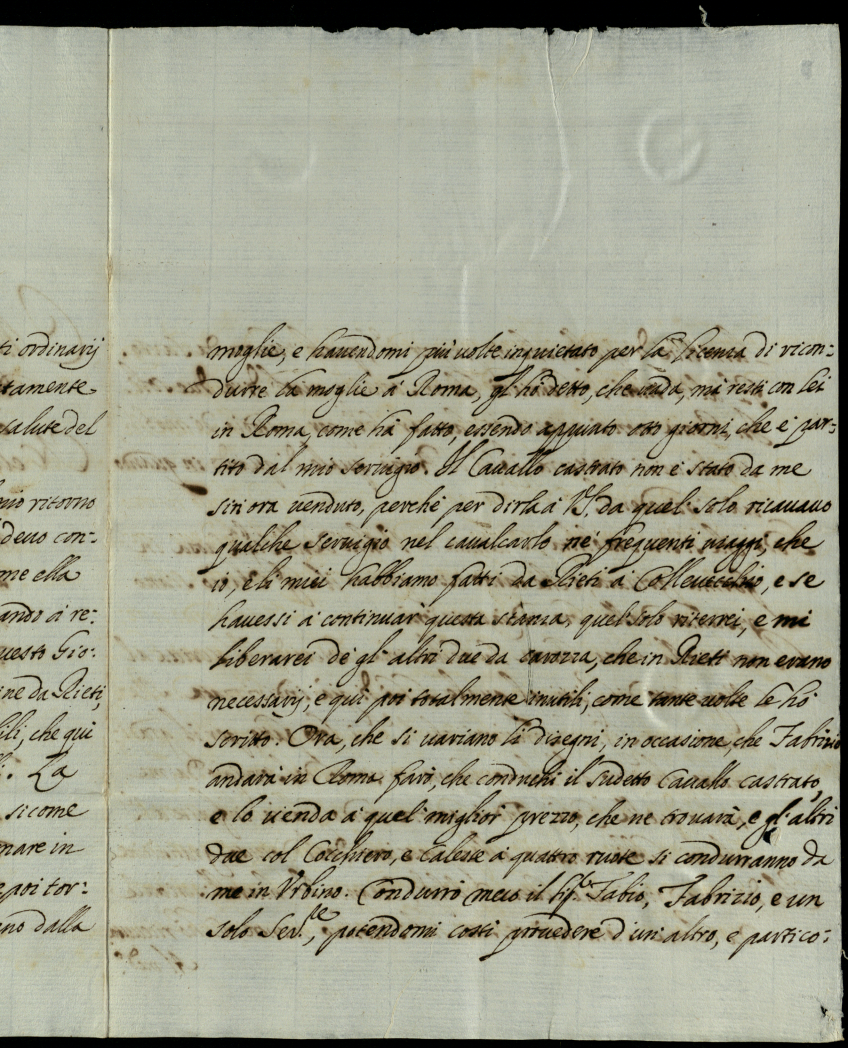 ti ordinarij
tamente
salute del
mio ritorno
deuo con-
me ella
ando ai re:
uesto Gio:
ne da Rieti,
ili, che qui
La
sicome
mare in
poi tor-
no dalla
moglie, e hauendomi più uolte inquietato per la licenza di ricon-
durre la moglie à Roma, gl'hò detto, che uada, mà resti con lei
in Roma, come hà fatto, essendo appunto otto giorni, che è par-
tito dal mio seruigio. Il Cauallo castrato non è stato da me
sin ora uenduto, perche per dirla à VS. da quel solo ricauauo
qualche seruigio nel caualcarlo ne' frequenti uiaggi, che
io, e li miei habbiamo fatti da Rieti à Colleuecchio, e se
hauessi à continuar questa stanza, quel solo riterrei, e mi
liberarei de gl'altri due da carozza, che in Rieti non erano
necessarij, e qui poi totalmente inutili, come tante uolte le hò
scritto. Ora, che si uariano li disegni, in occasione, che Fabrizio
andarà in Roma farò, che conduchi il sudetto Cauallo castrato,
e lo uenda à quel miglior prezzo, che ne trouarà, e gl'altri
due col Cocchiero, e Calesse à quattro ruote si condurranno da
me in Vrbino. Condurrò meco il Sig.re Fabio, Fabrizio, e un
solo Ser.le, potendomi costì prouedere d'un altro, e partico: